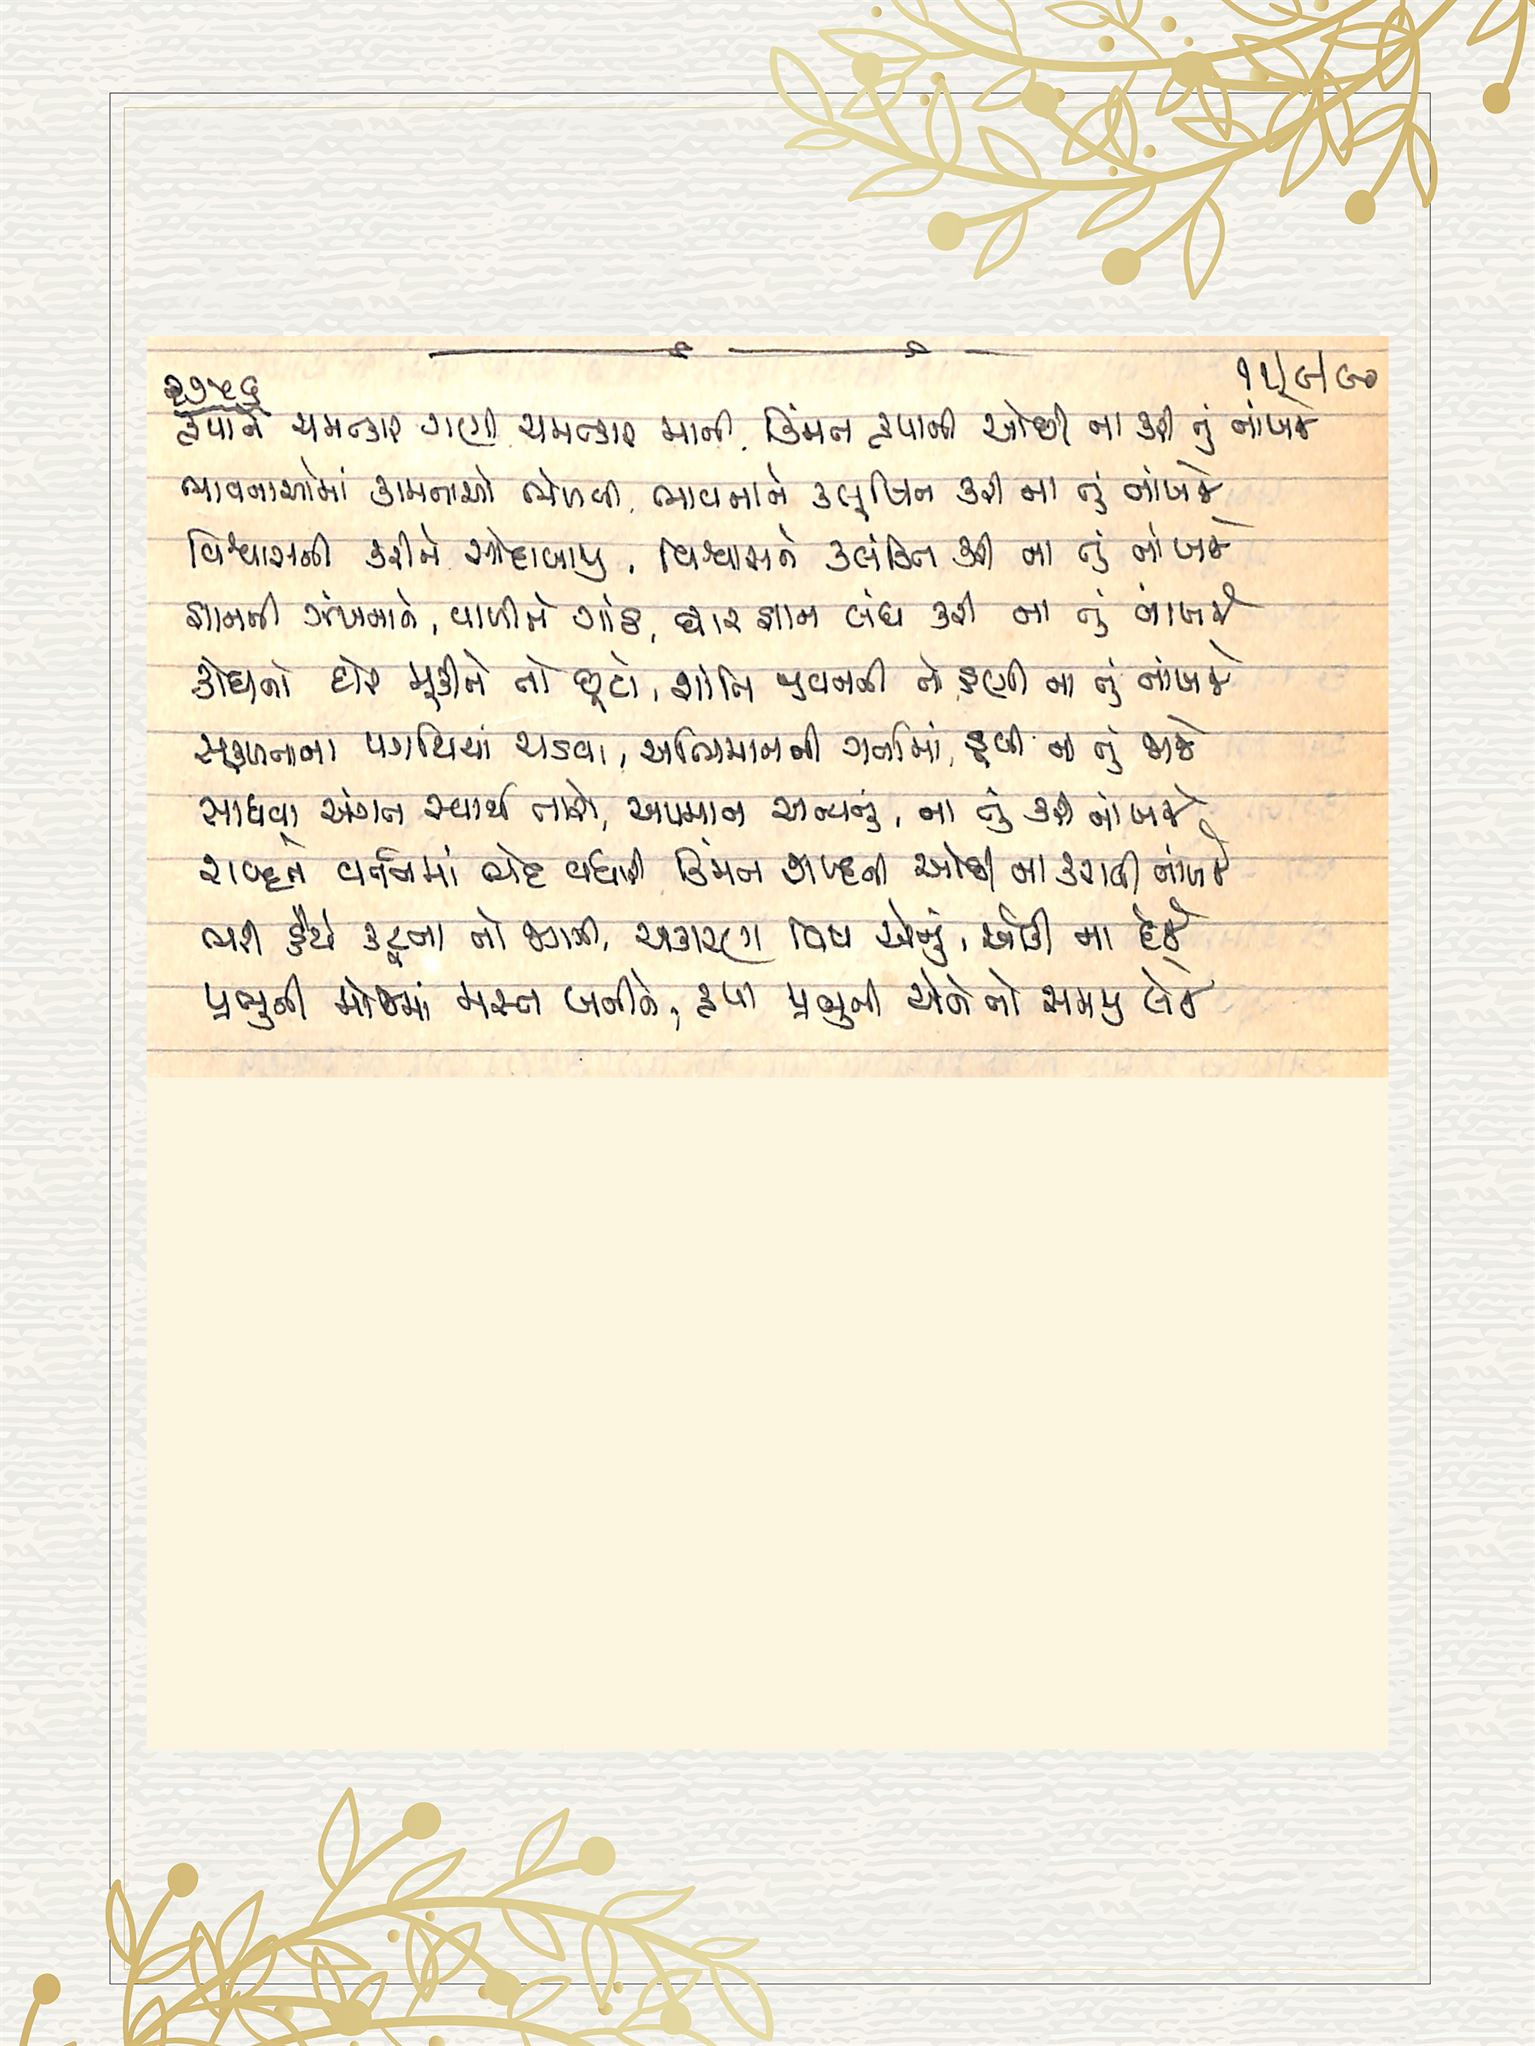 ૨૭૫૬ ૧૨/૯/૯૦
કૃપાને ચમત્કાર ગણી ચમત્કાર માની, કિંમત કૃપાની ઓછી ના કરી તું નાંખજે
ભાવનાઓમાં કામનાઓ ભેળવી, ભાવનાને કલુષિત કરી ના તું નાંખજે
વિશ્વાસની કરીને સોદાબાજી, વિશ્વાસને કલંકિત કરી ના તું નાંખજે
જ્ઞાનની ઝંખનાને, વાળીને ગાંઠ, દ્વાર જ્ઞાન બંધ કરી ના તું નાંખજે
ક્રોધનો દોર મૂકીને તો છૂટો, શાંતિ જીવનની તો હણી ના તું નાંખજે
સફળતાના પગથિયાં ચડવા, અભિમાનની ગર્તામાં, ડૂબી ના તું જાજે
સાધવા અંગત સ્વાર્થ તારો, અપમાન અન્યનું, ના તું કરી નાંખજે
શબ્દને વર્તનમાં ભેદ વધારી કિંમત શબ્દની ઓછી ના કરાવી નાંખજે
ભરી હૈયે કટુતા તો જાગી, અકારણ વિષ એનું, ઓકી ના દેજે
પ્રભુની મોજમાં મસ્ત બનીને, કૃપા પ્રભુની એને તો સમજી લેજે